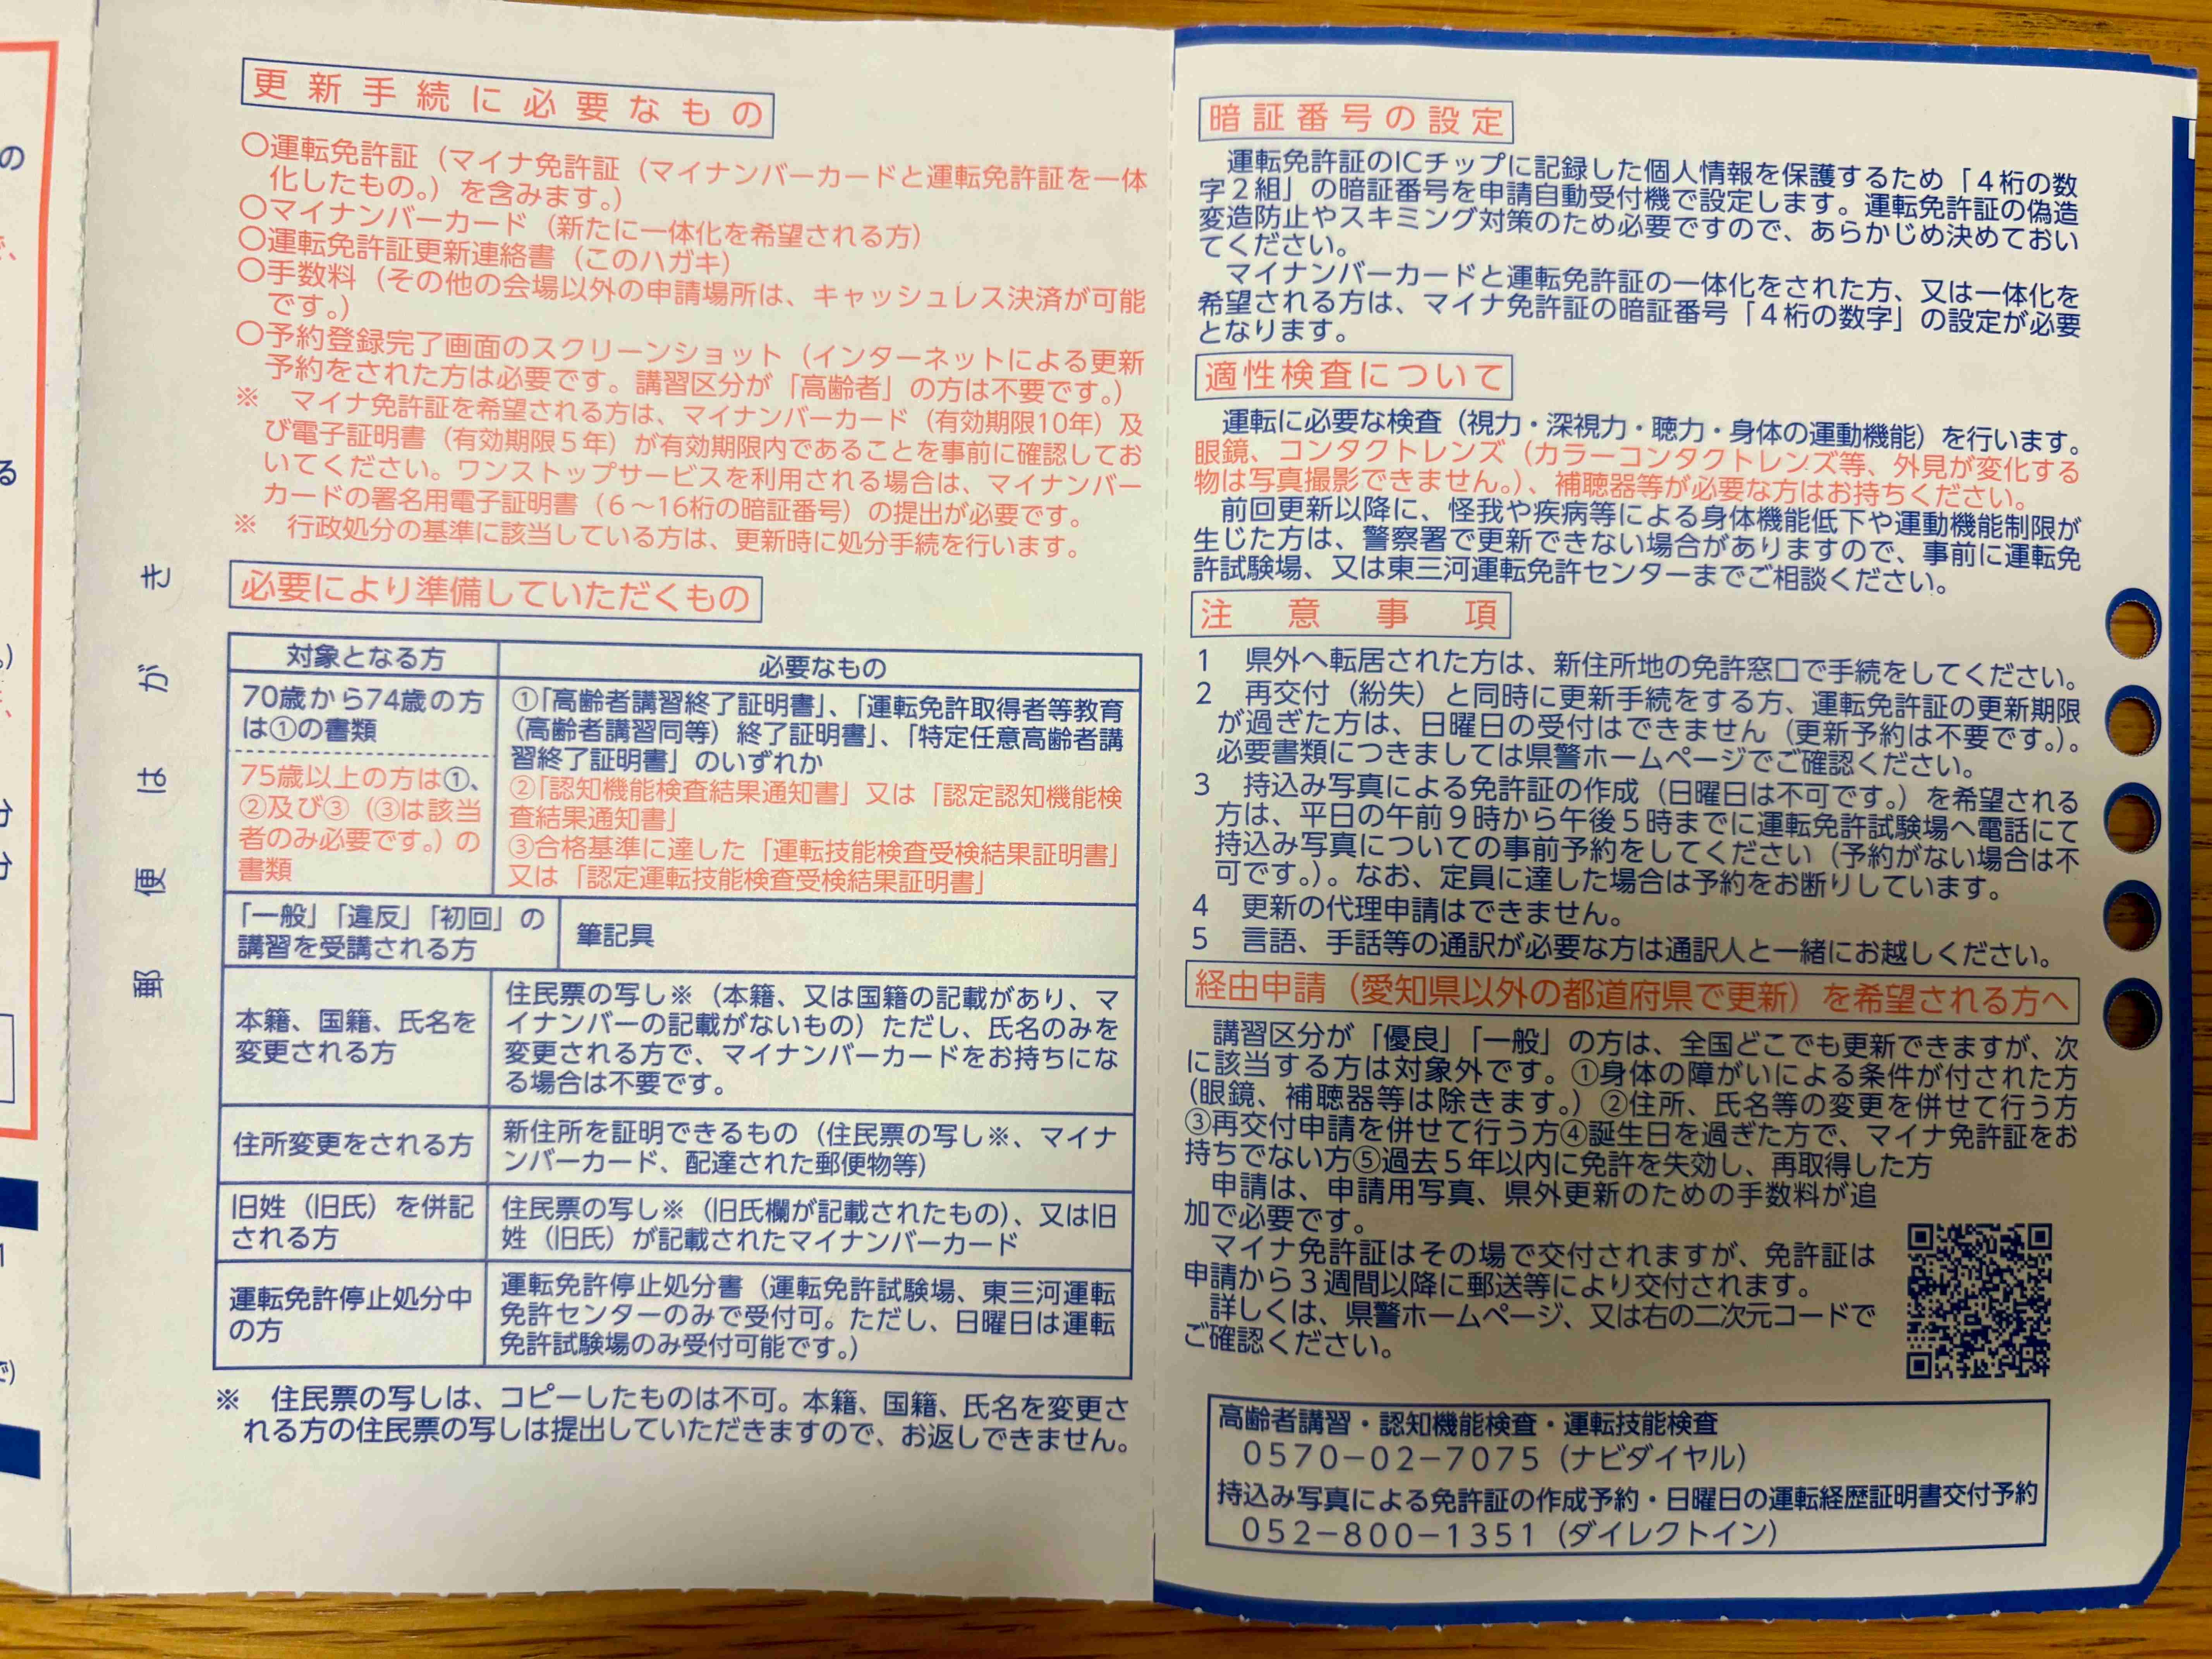 の
で、
る
。)
、
分
分
で)
郵便はがき
更新手続に必要なもの
○運転免許証（マイナ免許証（マイナンバーカードと運転免許証を一体
化したもの。）を含みます。）
○マイナンバーカード（新たに一体化を希望される方）
○運転免許証更新連絡書（このハガキ）
○手数料（その他の会場以外の申請場所は、キャッシュレス決済が可能
です。）
○予約登録完了画面のスクリーンショット（インターネットによる更新
予約をされた方は必要です。講習区分が「高齢者」の方は不要です。）
※　マイナ免許証を希望される方は、マイナンバーカード（有効期限10年）及
び電子証明書（有効期限５年）が有効期限内であることを事前に確認してお
いてください。ワンストップサービスを利用される場合は、マイナンバー
カードの署名用電子証明書（６～16桁の暗証番号）の提出が必要です。
※　行政処分の基準に該当している方は、更新時に処分手続を行います。
必要により準備していただくもの
対象となる方
必要なもの
70歳から74歳の方
は①の書類
75歳以上の方は①、
②及び③（③は該当
者のみ必要です。）の
書類
①「高齢者講習終了証明書」、「運転免許取得者等教育
（高齢者講習同等）終了証明書」、「特定任意高齢者講
習終了証明書」のいずれか
②「認知機能検査結果通知書」又は「認定認知機能検
査結果通知書」
③合格基準に達した「運転技能検査受検結果証明書」
又は「認定運転技能検査受検結果証明書」
「一般」「違反」「初回」の
講習を受講される方
筆記具
本籍、国籍、氏名を
変更される方
住民票の写し※（本籍、又は国籍の記載があり、マ
イナンバーの記載がないもの）ただし、氏名のみを
変更される方で、マイナンバーカードをお持ちにな
る場合は不要です。
住所変更をされる方
新住所を証明できるもの（住民票の写し※、マイナ
ンバーカード、配達された郵便物等）
旧姓（旧氏）を併記
される方
住民票の写し※（旧氏欄が記載されたもの）、又は旧
姓（旧氏）が記載されたマイナンバーカード
運転免許停止処分中
の方
運転免許停止処分書（運転免許試験場、東三河運転
免許センターのみで受付可。ただし、日曜日は運転
免許試験場のみ受付可能です。）
※　住民票の写しは、コピーしたものは不可。本籍、国籍、氏名を変更さ
れる方の住民票の写しは提出していただきますので、お返しできません。
暗証番号の設定
運転免許証のICチップに記録した個人情報を保護するため「４桁の数
字２組」の暗証番号を申請自動受付機で設定します。運転免許証の偽造
変造防止やスキミング対策のため必要ですので、あらかじめ決めておい
てください。
マイナンバーカードと運転免許証の一体化をされた方、又は一体化を
希望される方は、マイナ免許証の暗証番号「４桁の数字」の設定が必要
となります。
適性検査について
運転に必要な検査（視力・深視力・聴力・身体の運動機能）を行います。
眼鏡、コンタクトレンズ（カラーコンタクトレンズ等、外見が変化する
物は写真撮影できません。）、補聴器等が必要な方はお持ちください。
前回更新以降に、怪我や疾病等による身体機能低下や運動機能制限が
生じた方は、警察署で更新できない場合がありますので、事前に運転免
許試験場、又は東三河運転免許センターまでご相談ください。
注意事項
１　県外へ転居された方は、新住所地の免許窓口で手続をしてください。
２　再交付（紛失）と同時に更新手続をする方、運転免許証の更新期限
が過ぎた方は、日曜日の受付はできません（更新予約は不要です。）。
必要書類につきましては県警ホームページでご確認ください。
３　持込み写真による免許証の作成（日曜日は不可です。）を希望される
方は、平日の午前９時から午後５時までに運転免許試験場へ電話にて
持込み写真についての事前予約をしてください（予約がない場合は不
可です。）。なお、定員に達した場合は予約をお断りしています。
４　更新の代理申請はできません。
５　言語、手話等の通訳が必要な方は通訳人と一緒にお越しください。
経由申請（愛知県以外の都道府県で更新）を希望される方へ
講習区分が「優良」「一般」の方は、全国どこでも更新できますが、次
に該当する方は対象外です。①身体の障がいによる条件が付された方
（眼鏡、補聴器等は除きます。）②住所、氏名等の変更を併せて行う方
③再交付申請を併せて行う方④誕生日を過ぎた方で、マイナ免許証をお
持ちでない方⑤過去５年以内に免許を失効し、再取得した方
申請は、申請用写真、県外更新のための手数料が追
加で必要です。
マイナ免許証はその場で交付されますが、免許証は
申請から３週間以降に郵送等により交付されます。
詳しくは、県警ホームページ、又は右の二次元コードで
ご確認ください。
高齢者講習・認知機能検査・運転技能検査
０５７０－０２－７０７５（ナビダイヤル）
持込み写真による免許証の作成予約・日曜日の運転経歴証明書交付予約
０５２－８００－１３５１（ダイレクトイン）